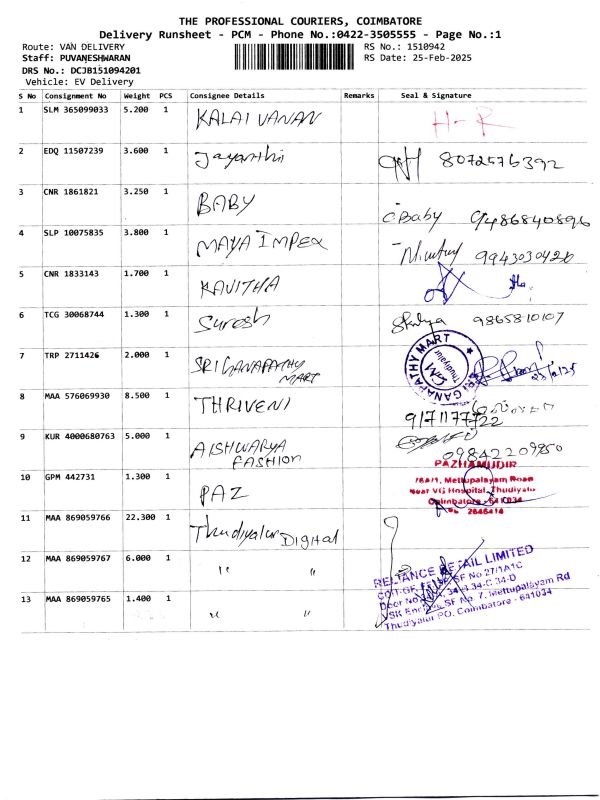 THE PROFESSIONAL COURIERS, COIMBATORE
Delivery Runsheet - PCM - Phone No.:0422-3505555 - Page No.:1
Route: VAN DELIVERY RS No.: 1510942
Staff: PUVANESHWARAN RS Date: 25-Feb-2025
DRS No.: DCJB151094201
Vehicle: EV Delivery
S No Consignment No Weight PCS Consignee Details Remarks Seal & Signature
1 SLM 365099033 5.200 1 KALAIVANAN H-R
2 EDQ 11507239 3.600 1 Jayanthi 8072576392
3 CNR 1861821 3.250 1 BABY C Baby 9486840896
4 SLP 10075835 3.800 1 MAYA IMPEX 9943030420
5 CNR 1833143 1.700 1 KAVITHA
6 TCG 30068744 1.300 1 Suresh 9865810107
7 TRP 2711426 2.000 1 SRI GANAPATHY MART
SRI GANAPATHY MART
Thudiyalur
8 MAA 576069930 8.500 1 THRIVENI 9171177722
9 KUR 4000680763 5.000 1 AISHWARYA FASHION 09842209850
10 GPM 442731 1.300 1 PAZ
PAZHAMUDIR
78A/1, Mettupalayam Road
Near VG Hospital, Thudiyalur
Coimbatore - 641034
2646414
11 MAA 869059766 22.300 1 Thudiyalur Digital
12 MAA 869059767 6.000 1 " "
13 MAA 869059765 1.400 1 " "
RELIANCE RETAIL LIMITED
SF No 27/1A1C
Door No 34-C 34-D
SF No. 7, Mettupalayam Rd
Thudiyalur PO, Coimbatore - 641034